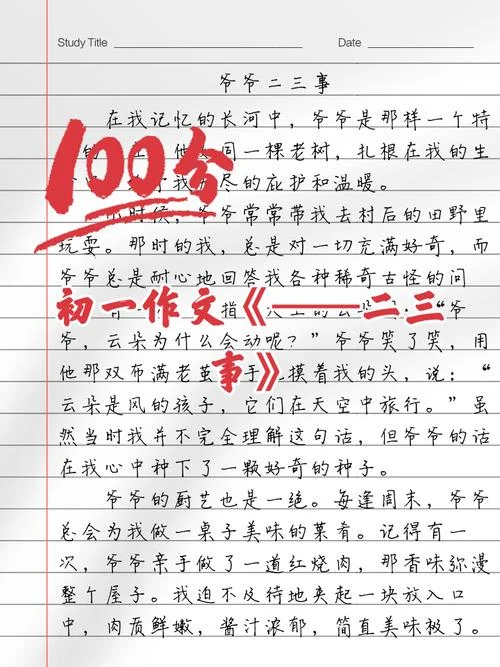 Study Title
Date
爷爷二三事
在我记忆的长河中，爷爷是那样一个特
100分
同一棵老树，扎根在我的生
尽的庇护和温暖。
时候，爷爷常常带我去村后的田野里
玩耍。那时的我，总是对一切充满好奇，而
爷爷总是耐心地回答我各种稀奇古怪的问
初一作文《——二三
事》
指
“爷
爷，云朵为什么会动呢？”爷爷笑了笑，用
他那双布满老茧
手
摸着我的头，说：“
云朵是风的孩子，它们在天空中旅行。”虽
然当时我并不完全理解这句话，但爷爷的话
在我心中种下了一颗好奇的种子。
爷爷的厨艺也是一绝。每逢周末，爷爷
总会为我做一桌子美味的菜肴。记得有一
次，爷爷亲手做了一道红烧肉，那香味弥漫
整个屋子。我迫不及待地夹起一块放入口
中，肉质鲜嫩，酱汁浓郁，简直美味极了。